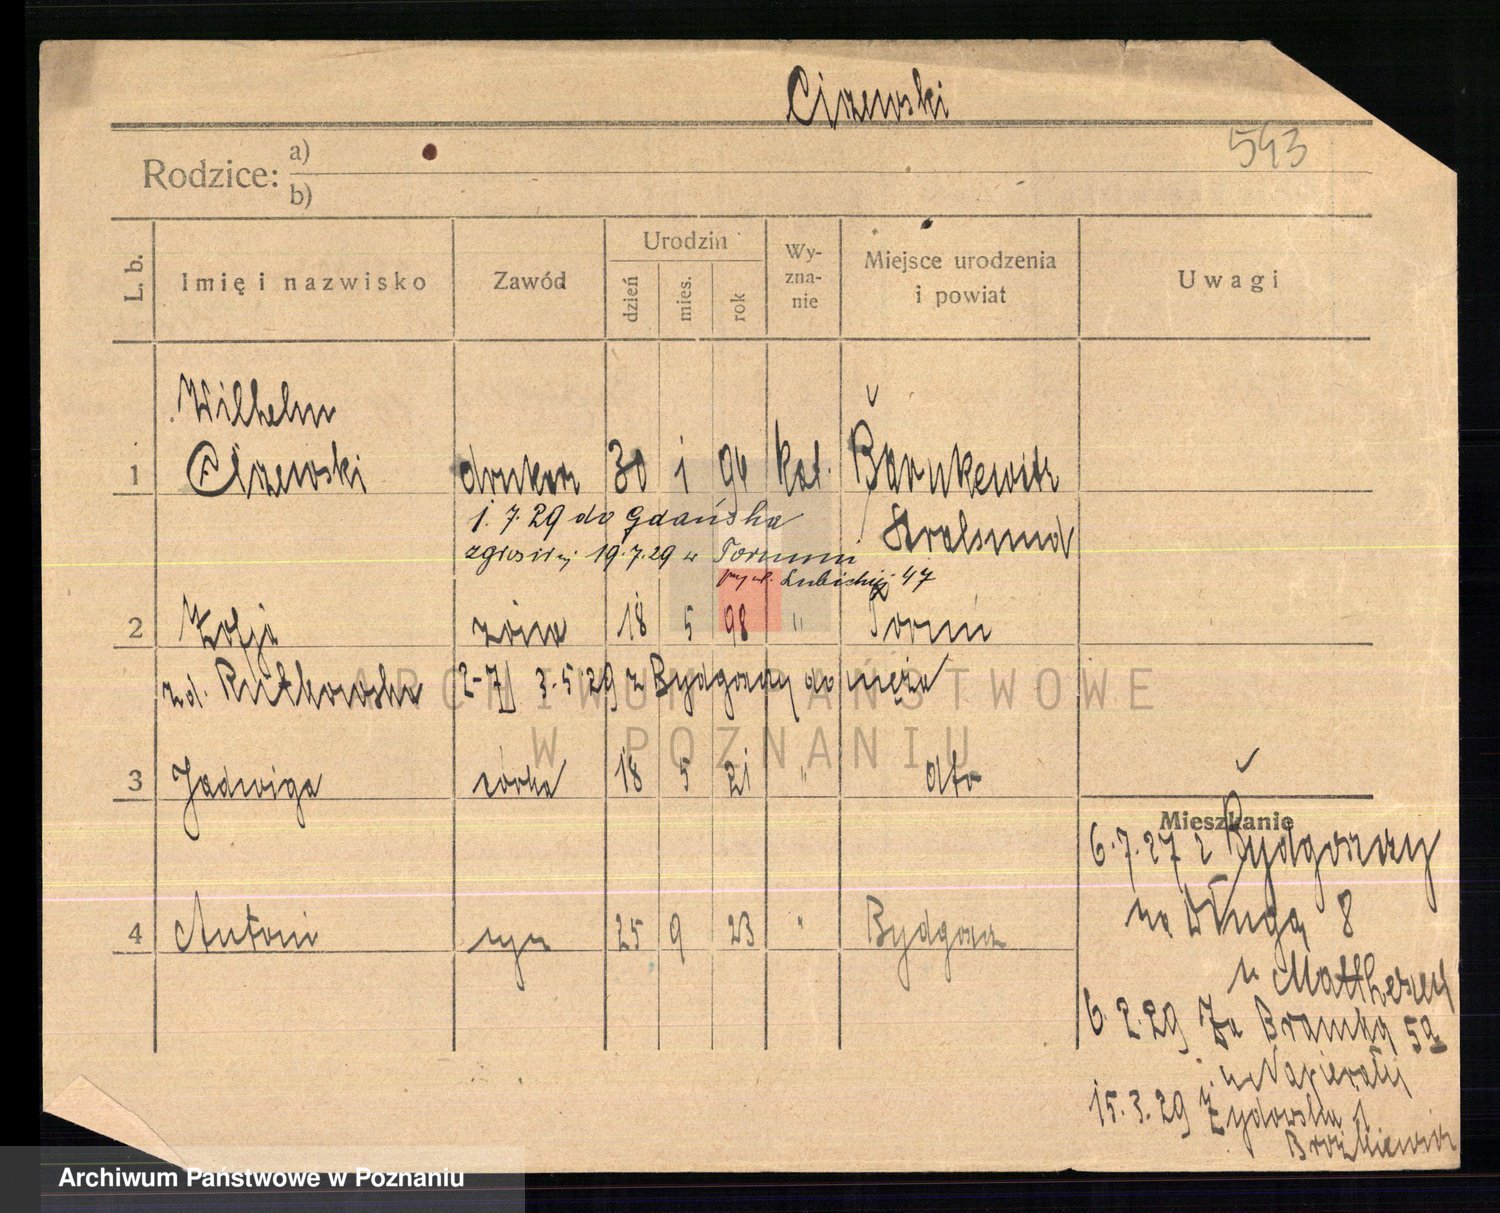 Cizewski
543
Rodzice: a)
b)
L. b. Imię i nazwisko Zawód Urodzin dzień mies. rok Wy-zna-nie Miejsce urodzenia i powiat Uwagi
Wilhelm
1 Cizewski drukarz 30 1 94 kat. Barukewitz
1.7.29 do Gdańska Stralsund
19.7.29 w Toruniu
47
2 Zofja żona 18 5 98 " Toruń
zd. Rutkowska 3.5.29 z Bydgoszczy do męża
ARCHIWUM PAŃSTWOWE
W POZNANIU
3 Jadwiga córka 18 5 21 " dto
Mieszkanie
6.7.27 z Bydgoszczy
na Długą 8
4 Antoni syn 25 9 23 " Bydgoszcz
u
6.2.29 Za Bramką 5a
u Napierały
15.3.29 Żydowska 1
Archiwum Państwowe w Poznaniu